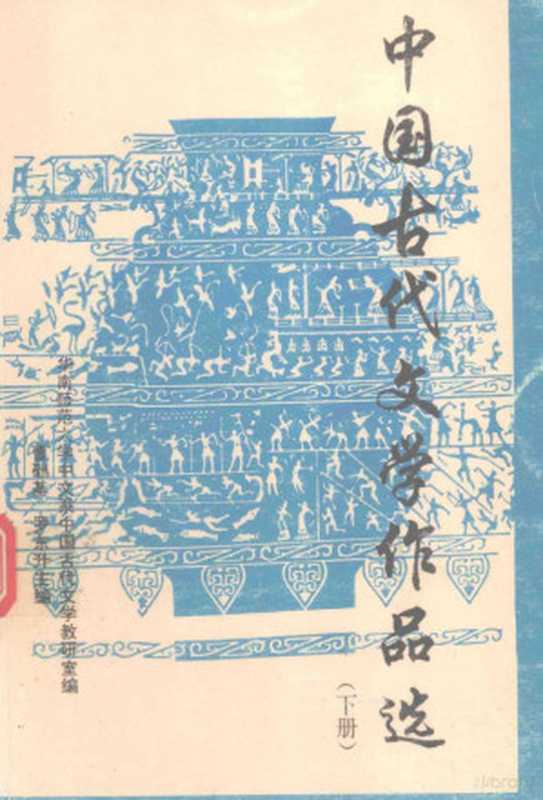 中国古代文学作品选
（下册）
华南师范大学中文系中国古代文学教研室编
主编